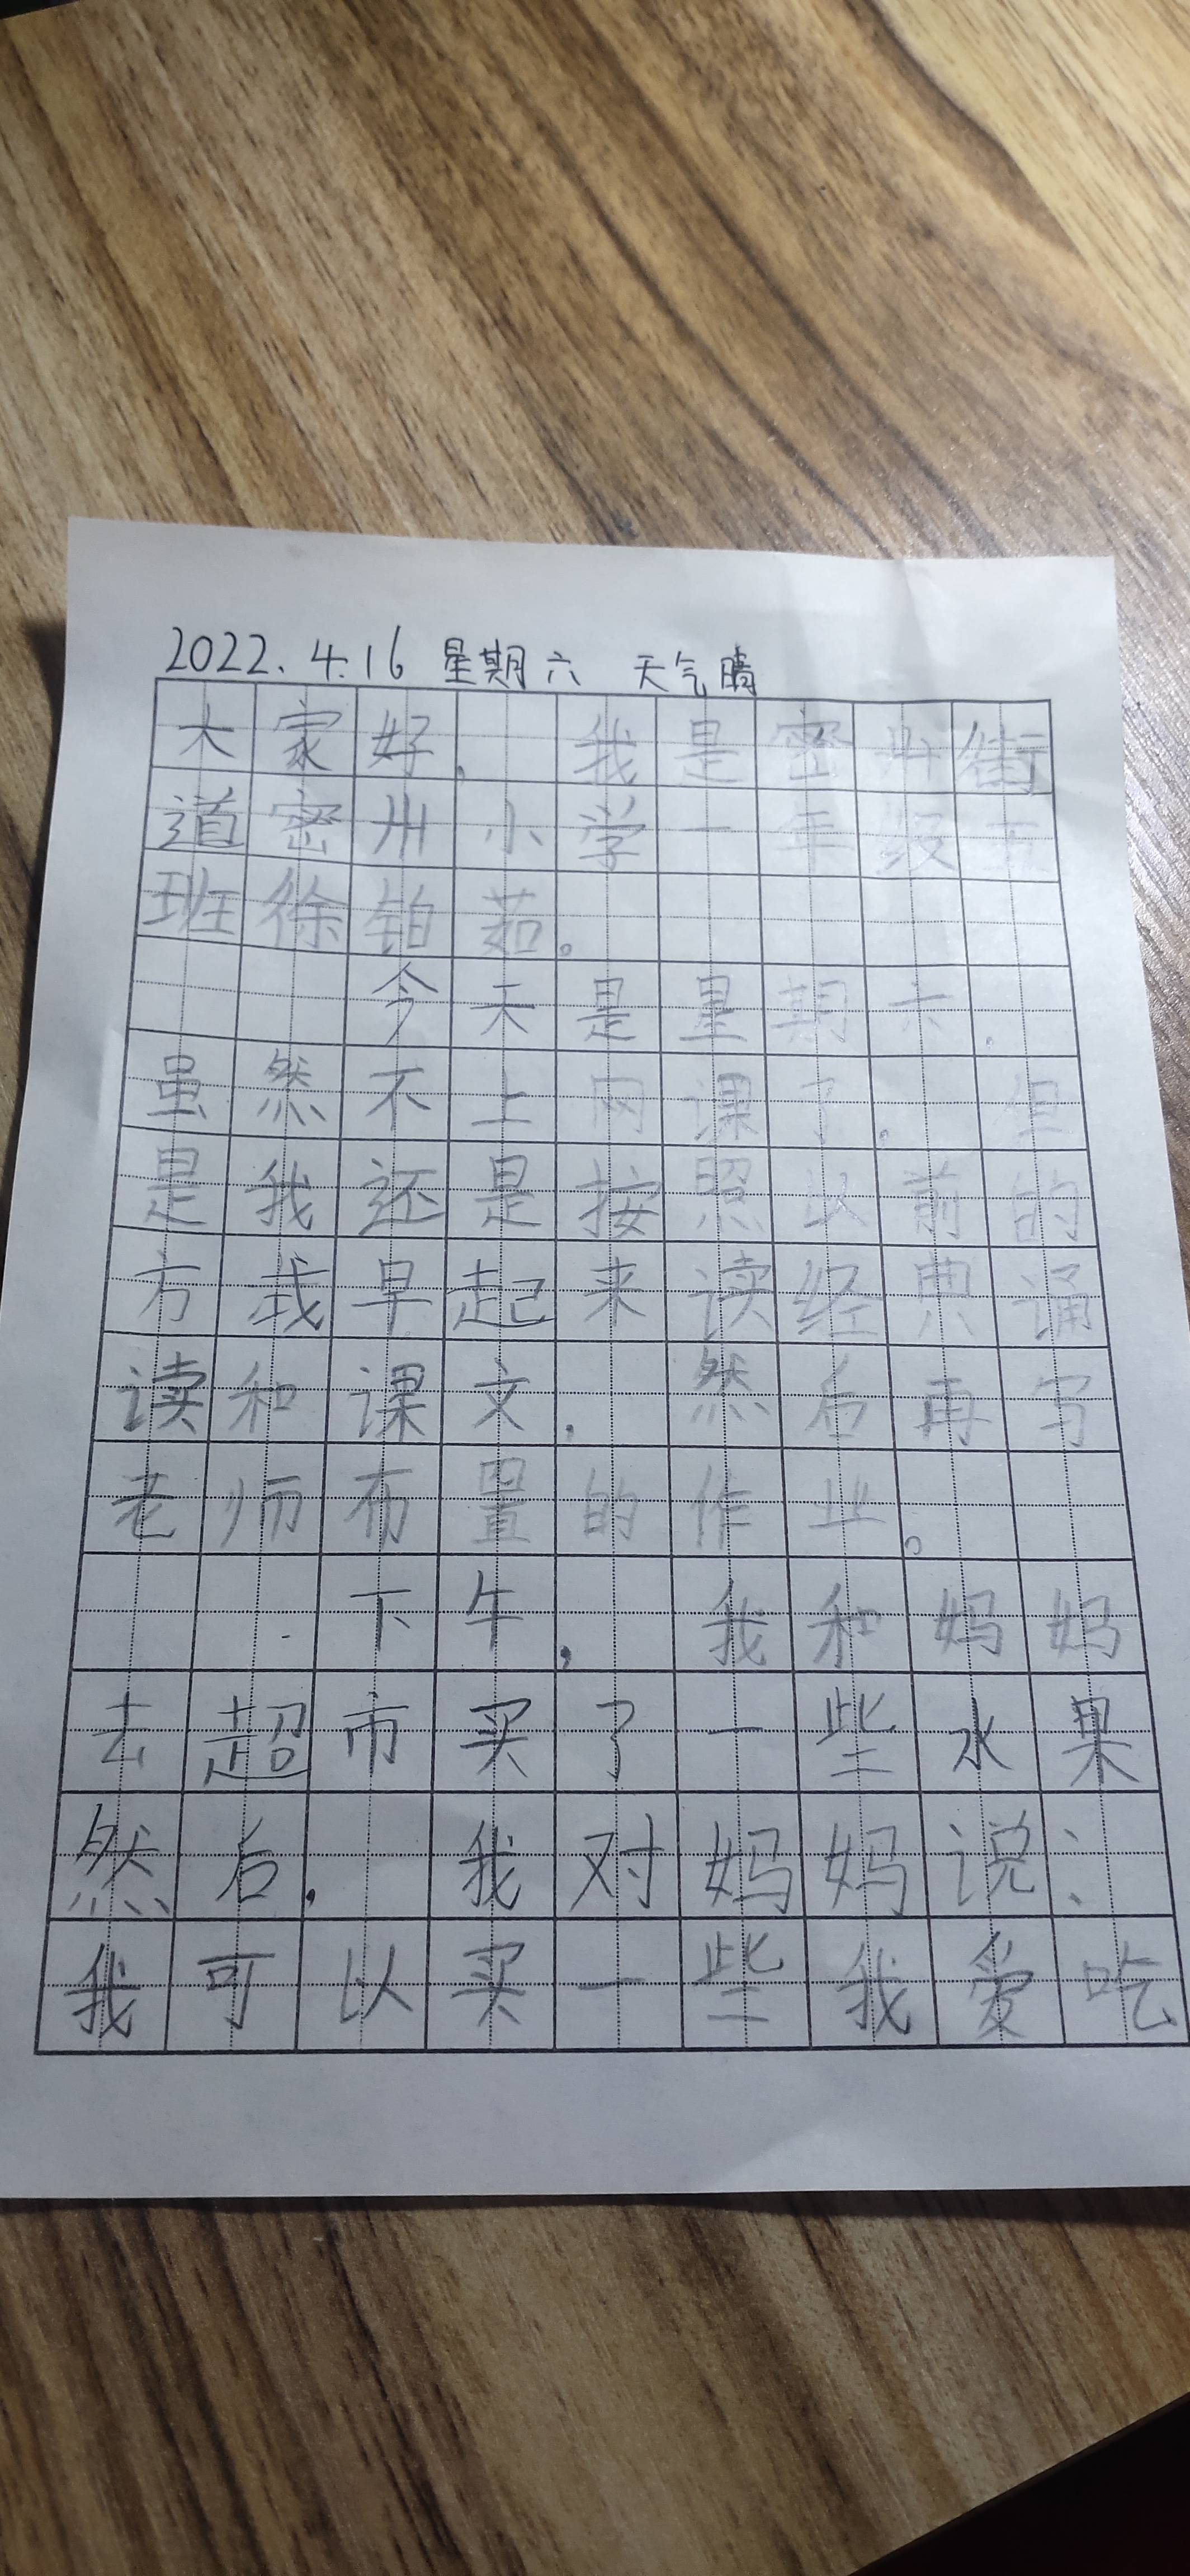 2022.4.16 星期六 天气晴
大家好，我是密州街
道密州小学一年级五
班徐铂茹。
今天是星期六，
虽然不上网课了，但
是我还是按照以前的
方式早起来读经典诵
读和课文，然后再写
老师布置的作业。
下午，我和妈妈
去超市买了一些水果
然后，我对妈妈说：
我可以买一些我爱吃